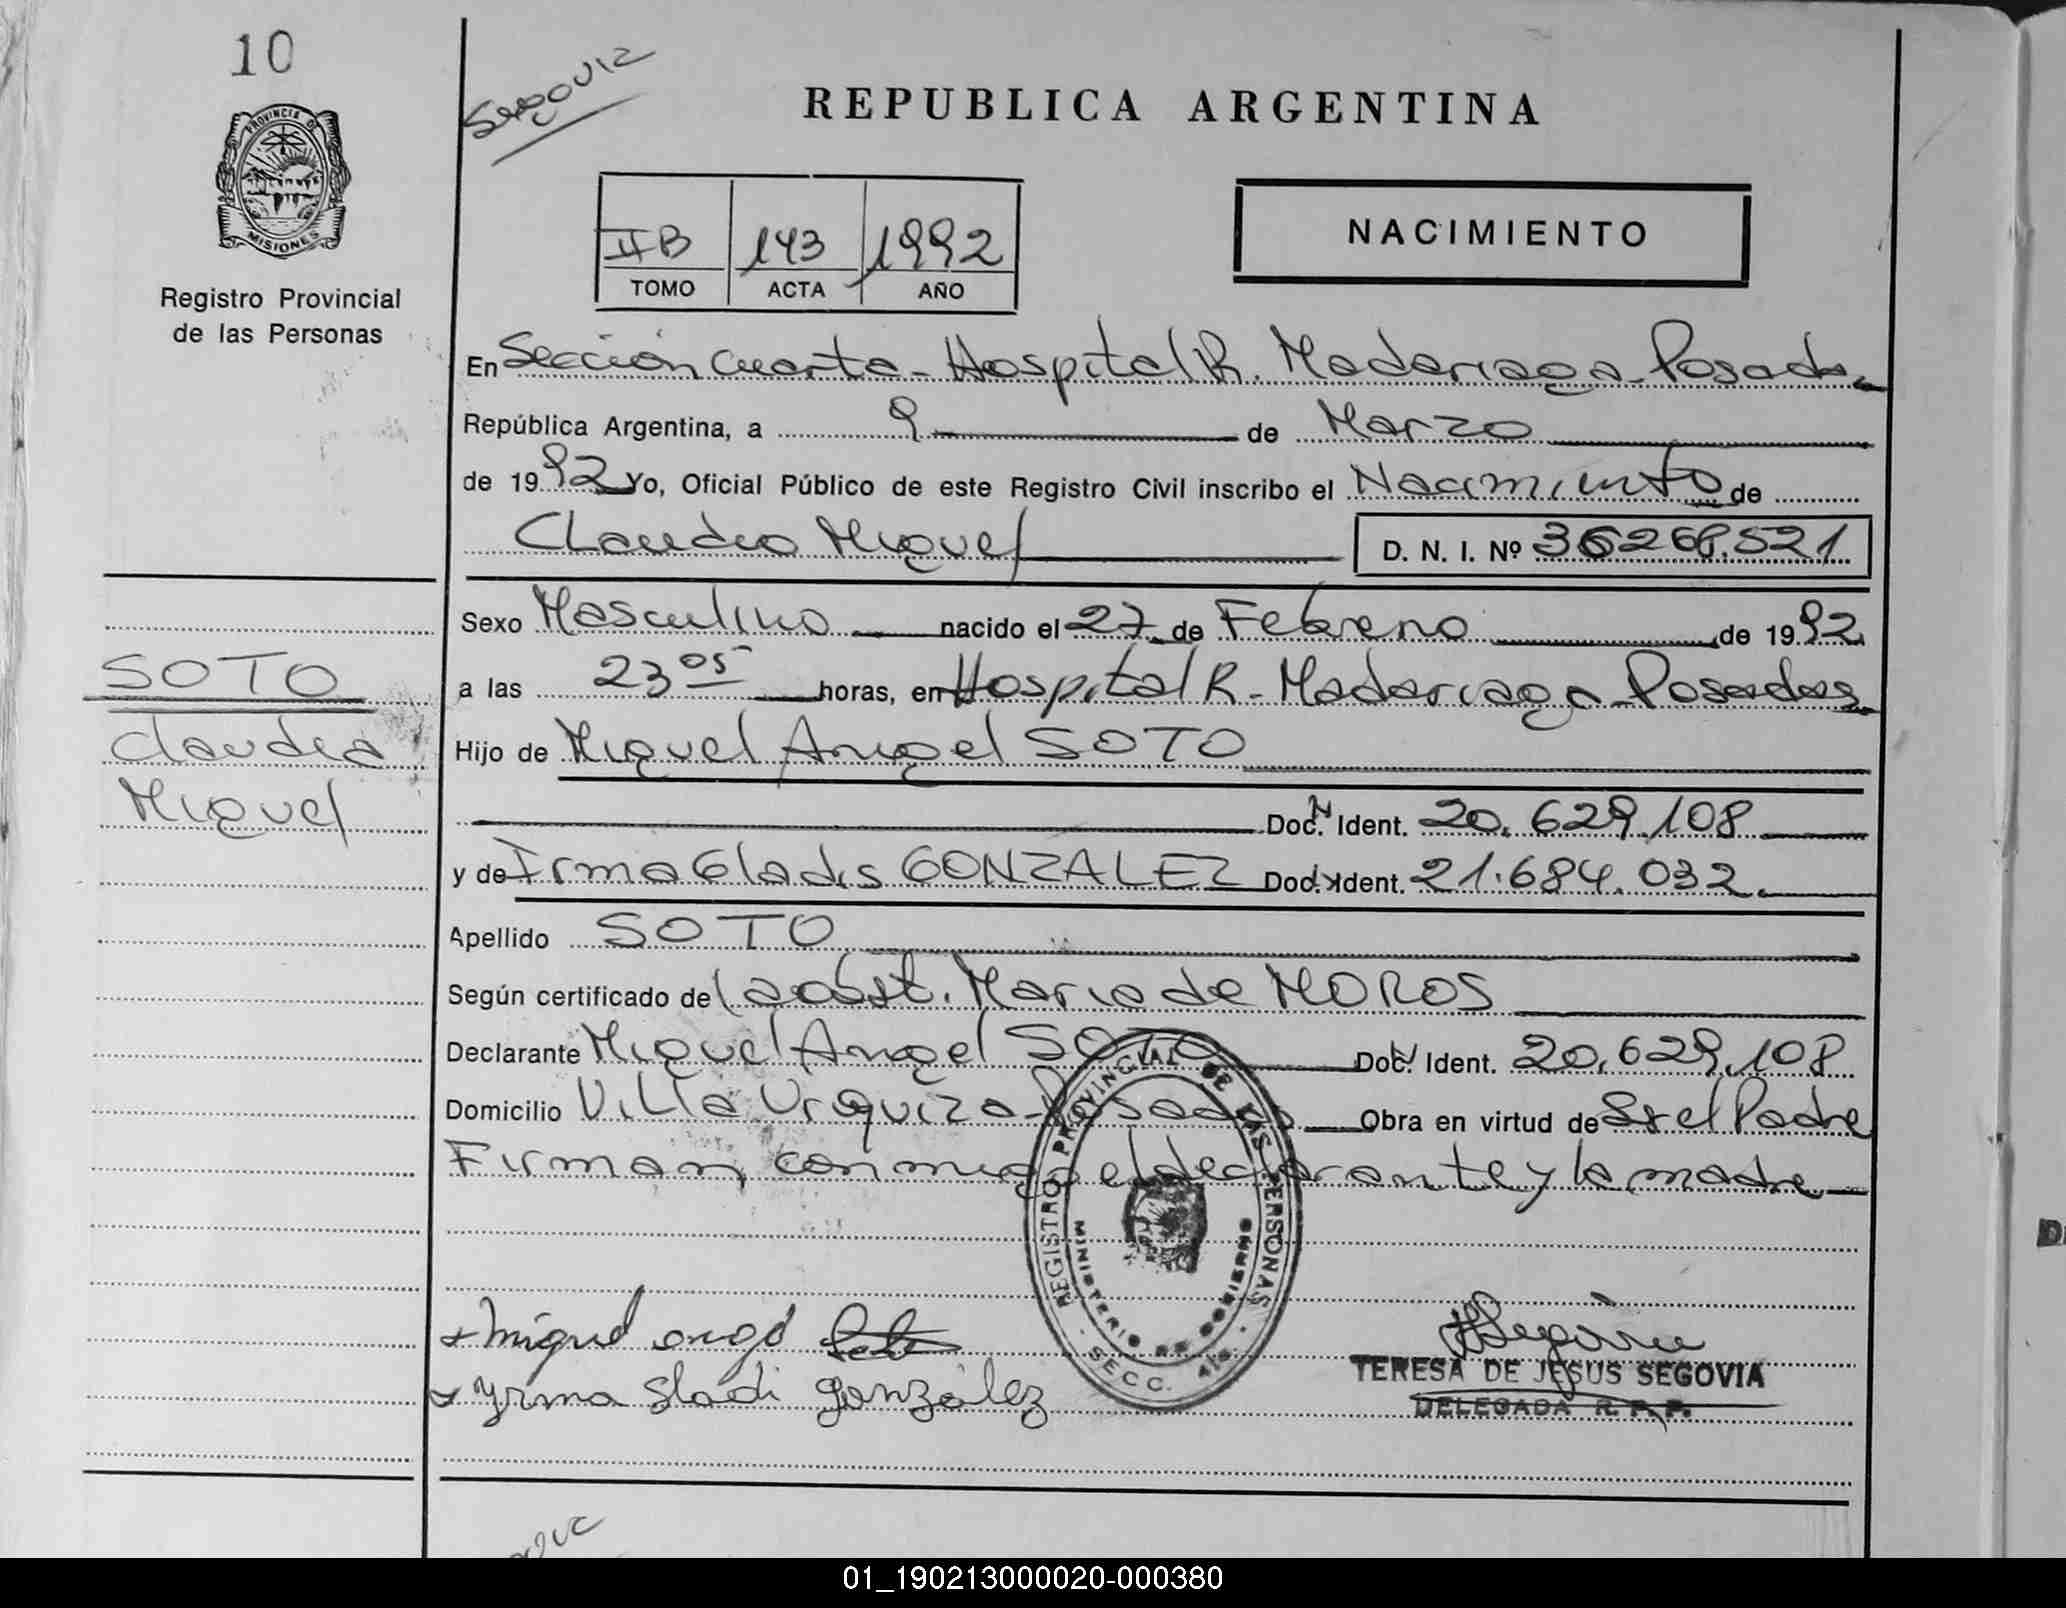 10
Segovia
REPUBLICA ARGENTINA
PROVINCIA DE
MISIONES
Registro Provincial
de las Personas
II B 143 1992
TOMO ACTA AÑO
NACIMIENTO
En Sección Cuarta - Hospital R. Madariaga - Posadas
República Argentina, a 9 de Marzo
de 1992 Yo, Oficial Público de este Registro Civil inscribo el Nacimiento de
Claudio Miguel D. N. I. Nº
Sexo Masculino nacido el 27 de Febrero de 1992
a las 23 05 horas, en Hospital R. Madariaga - Posadas
SOTO
Claudio
Miguel
Hijo de Miguel Angel SOTO
Doc. N Ident. 20.629.108
y de Irma Gladis GONZALEZ Doc. Ident. 21.684.032.
Apellido SOTO
Según certificado de la obst. Maria de MOROS
Declarante Miguel Angel SOTO Doc. N Ident. 20.629.108
Domicilio Villa Urquiza - Posadas Obra en virtud de Ser el Padre
Firman conmigo el declarante y la madre
REGISTRO PROVINCIAL DE LAS PERSONAS
MINISTERIO DE GOBIERNO
SECC. 4ta.
Miguel angel Soto
Yrma Gladi gonzález
TERESA DE JESUS SEGOVIA
DELEGADA R. P. P.
01_190213000020-000380